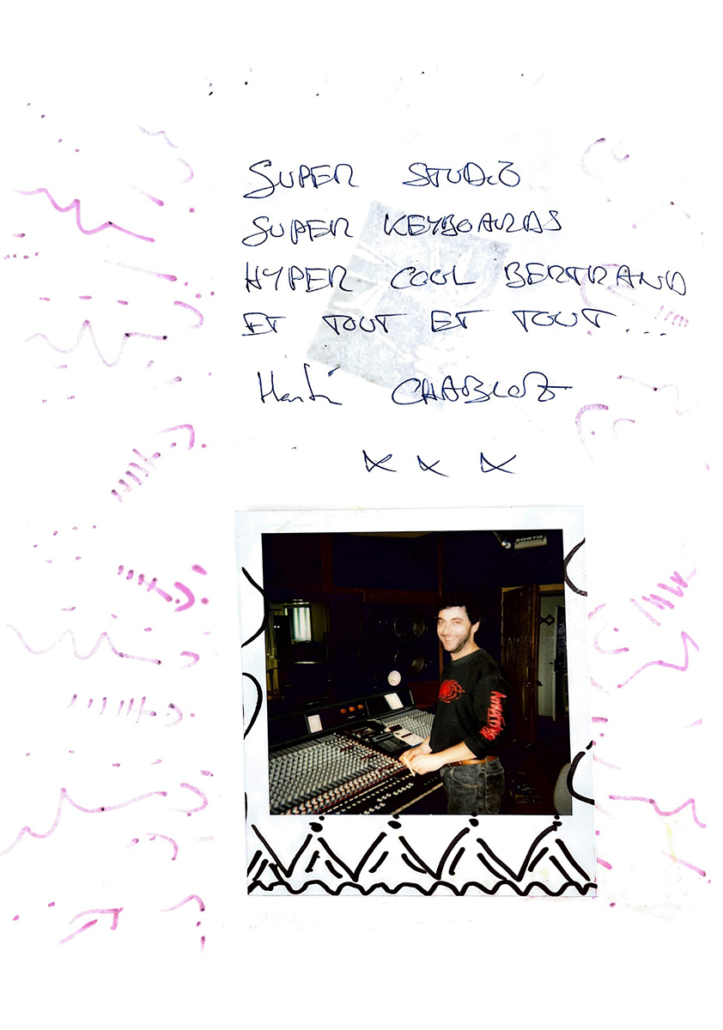 SUPER STUDIO
SUPER KEYBOARDS
HYPER COOL BERTRAND
ET TOUT ET TOUT...
CHABLOZ
x x x